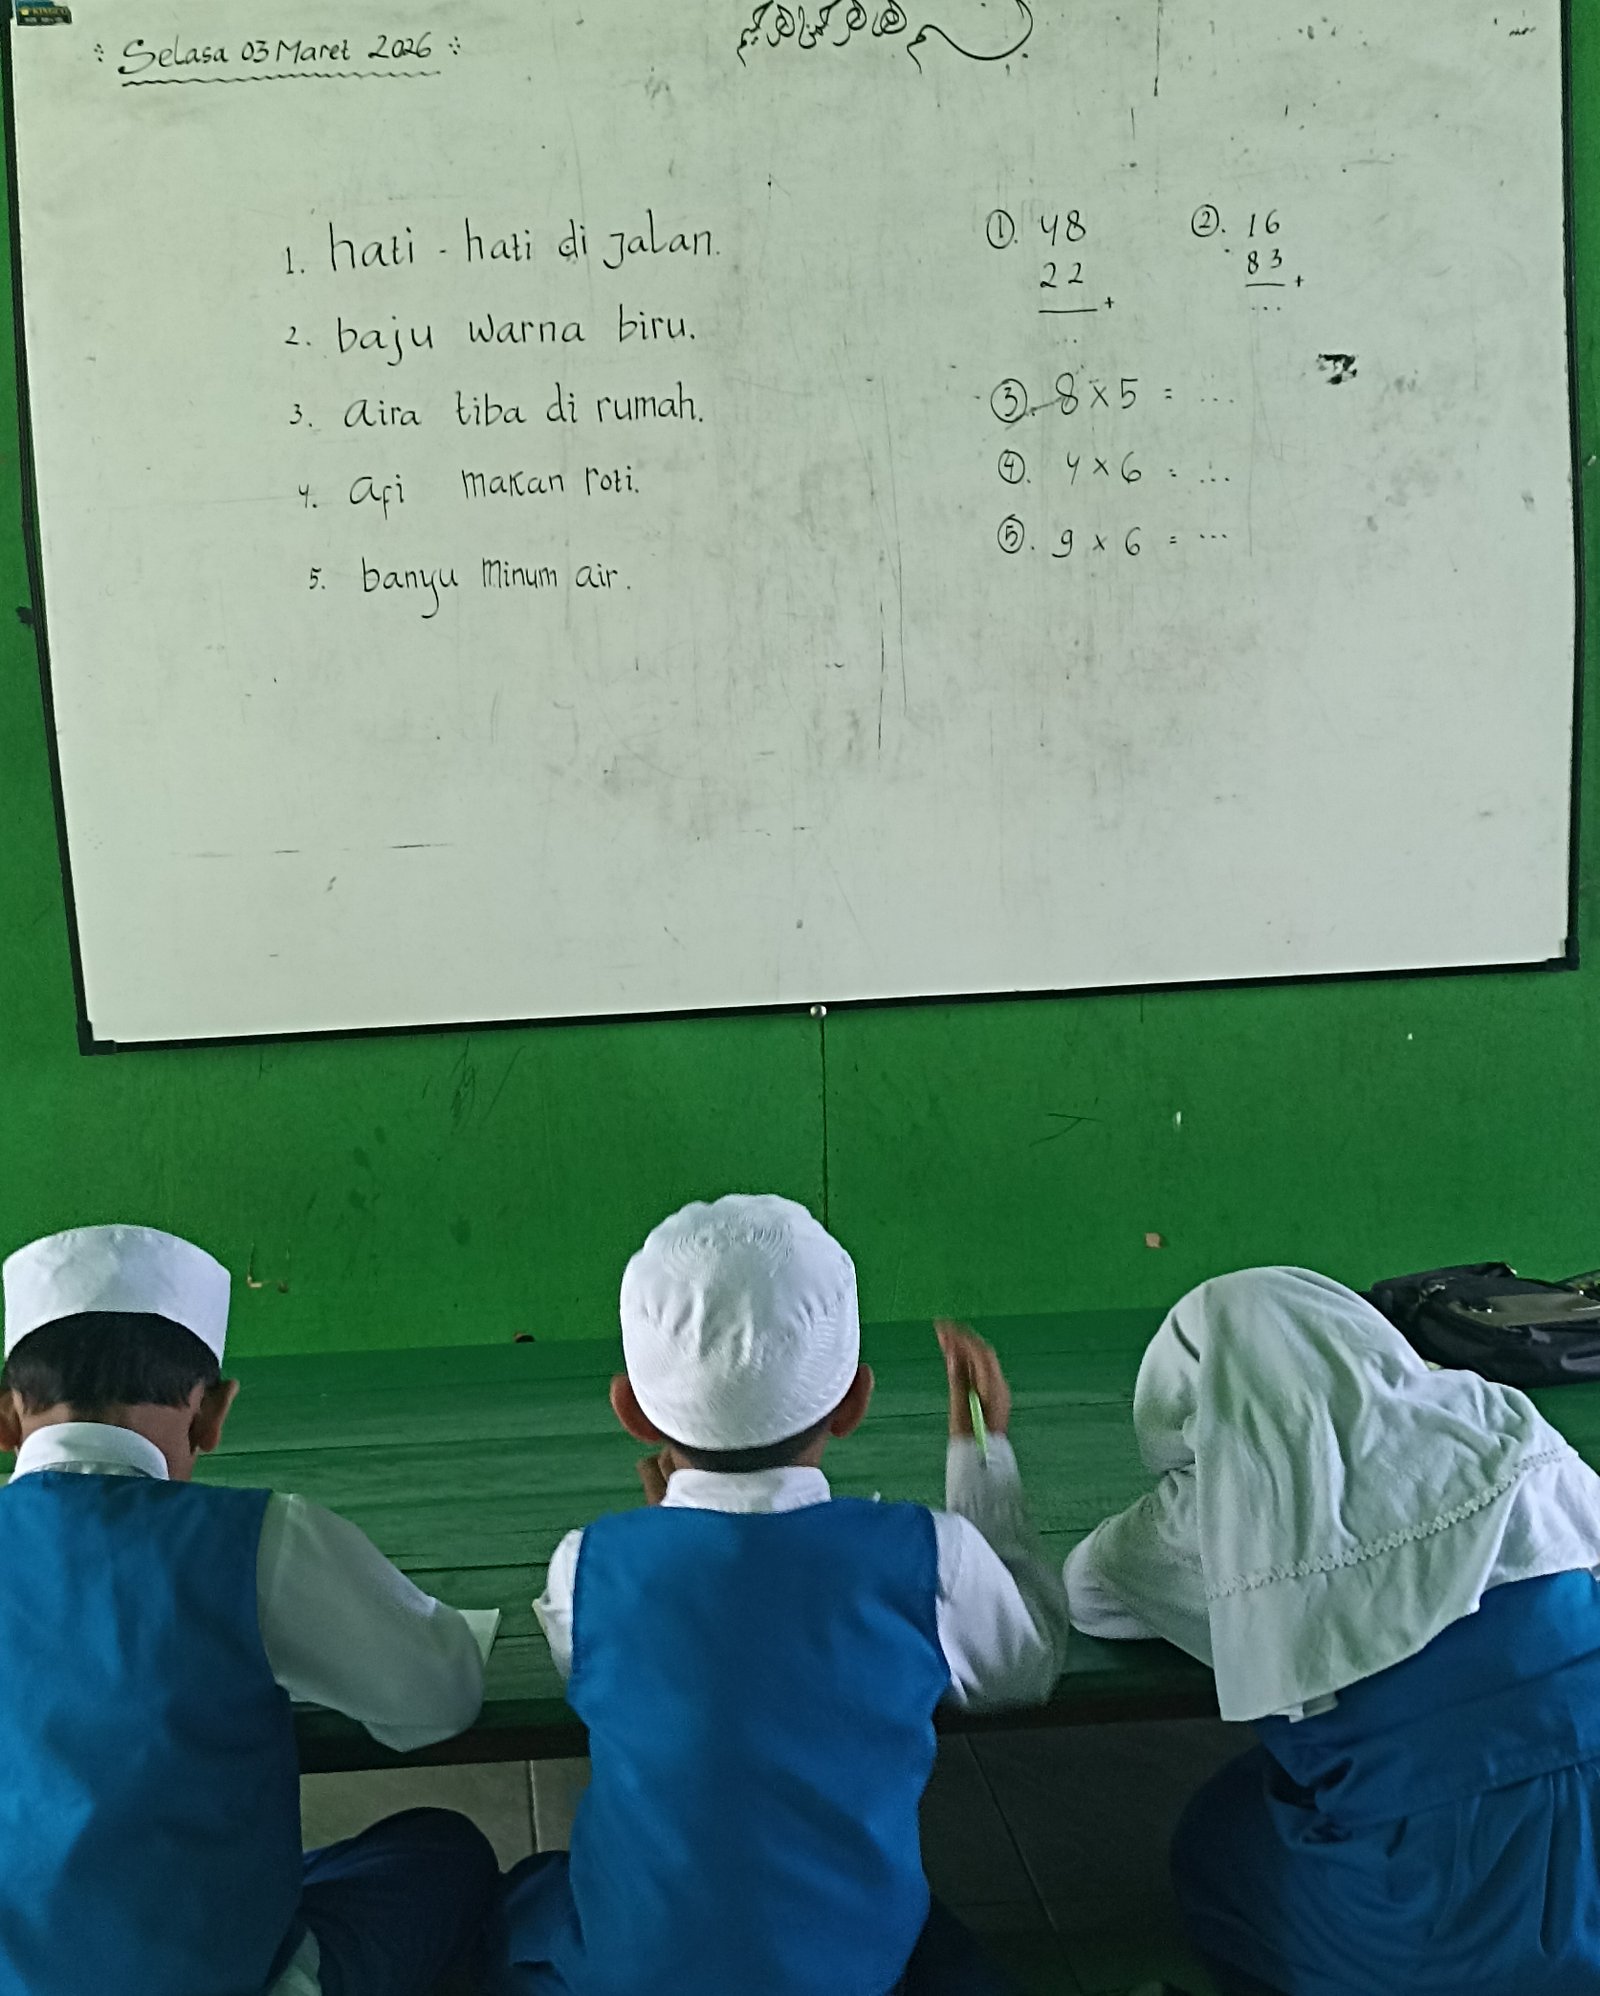 Selasa 03 Maret 2026
1. hati - hati di jalan.
2. baju warna biru.
3. aira tiba di rumah.
4. api makan roti.
5. banyu minum air.
①. 48
22
+
...
②. 16
83
+
...
③. 8 × 5 = ...
④. 4 × 6 = ...
⑤. 9 × 6 = ...